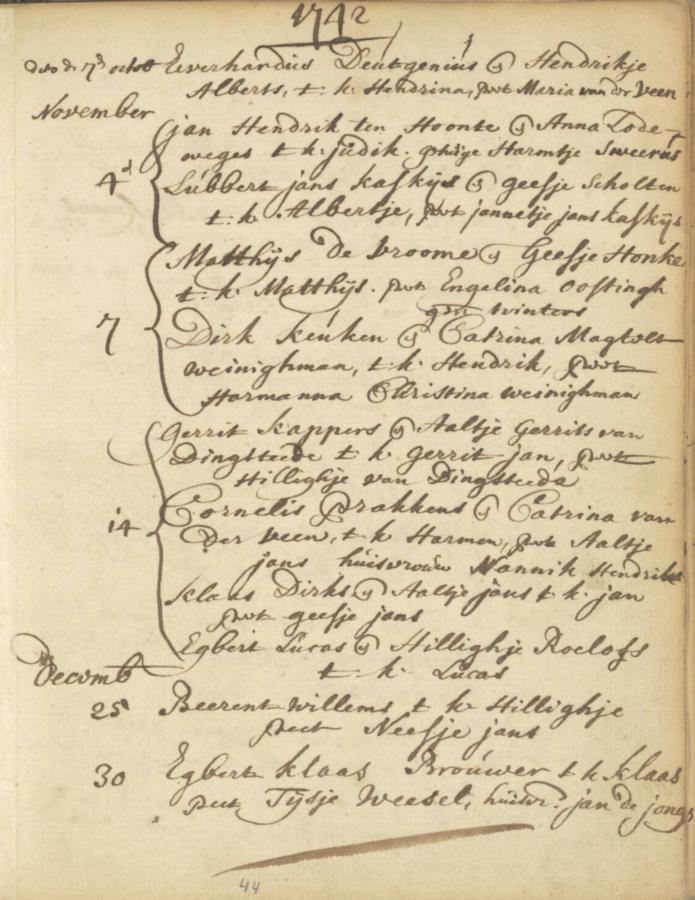 1742
den 7d octob Everhardus Deutgenius en Hendrikje
Alberts, t: k. Hendrina, peet Maria van der Veen
November
jan Hendrik ten Hoonte en Anna Lode-
weges t k. judik. getuige Harmtje Sweerus
4d Lubbert jans kaskijs en geesje Scholten
t: k. Albertje, peet jannetje jans kaskijs
Matthijs de vroome en Geesje Honke
t: k. Matthijs. peet Engelina Oostingh
gen winters
7 Dirk keuken en Catrina Magtelt
weinighman, t: k. Hendrik, peet
Harmanna Christina weinighman
Gerrit kappers en Aaltje Gerrits van
Dingsteede t k gerrit jan, peet
Hillighje van Dingsteede
14 Cornelis Brakkens en Catrina van
Der Veen, t. k Harmen, peet Aaltje
jans huisvrouw Mannik Hendriks
klaas Dirks en Aaltje jans t k. jan
peet geesje jans
Egbert Lucas en Hillighje Roelofs
t: k. Lucas
Decemb
25 Beerent willems t k Hillighje
peet Neesje jans
30 Egbert klaas Brouwer t k klaas
peet Tijsje Weasel, huisvr: jan de jongs
44